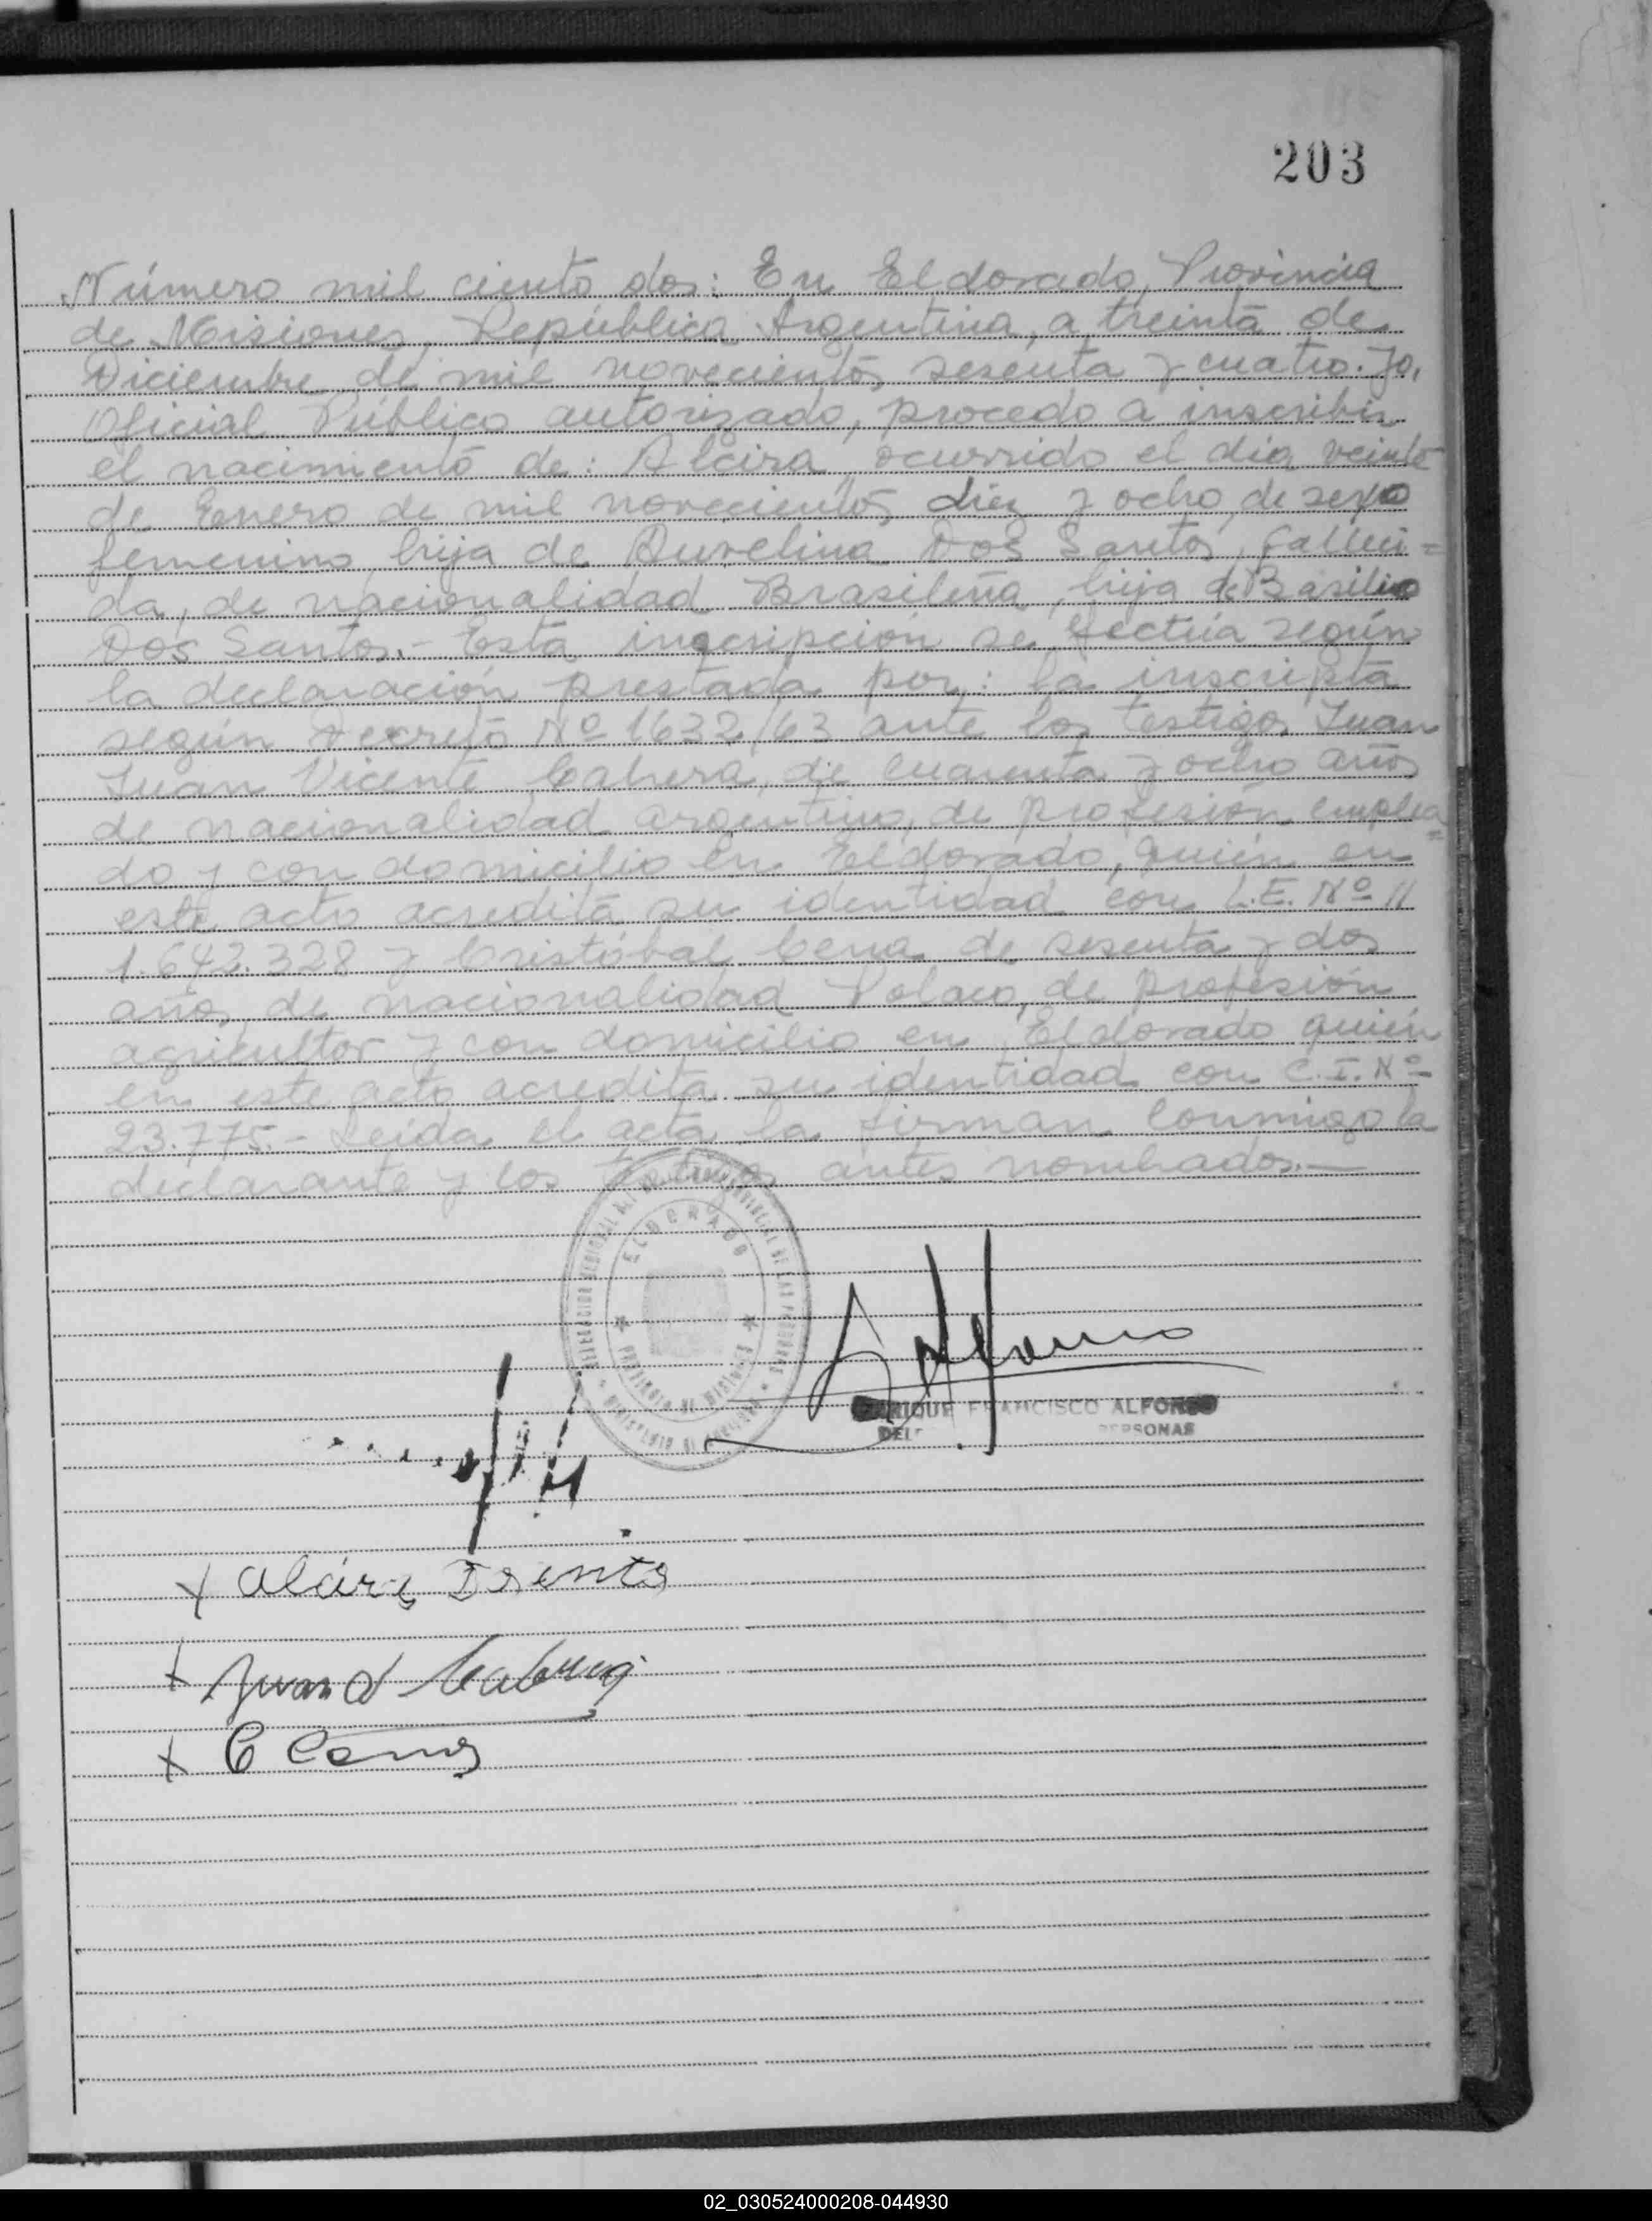 203
Número mil ciento dos: En Eldorado, Provincia
de Misiones, República Argentina, a treinta de
Diciembre de mil novecientos sesenta y cuatro. Yo,
Oficial Público autorizado, procedo a inscribir
el nacimiento de: Alcira, ocurrido el día veinte
de Enero de mil novecientos diez y ocho, de sexo
femenino, hija de Aurelina Dos Santos, falleci=
da, de nacionalidad Brasileña, hija de Basilio
Dos Santos.- Esta inscripción se efectúa según
la declaración prestada por: la inscripta
según Decreto Nº 1632/63 ante los testigos Juan
Juan Vicente Cabrera, de cuarenta y ocho años
de nacionalidad argentino, de profesión emplea=
do y con domicilio en Eldorado, quién en
este acto acredita su identidad con L.E. Nº //
1.642.328 y Cristóbal Cena de sesenta y dos
años, de nacionalidad Polaco, de profesión
agricultor y con domicilio en Eldorado quién
en este acto acredita su identidad con C.I. Nº
23.775.- Leída el acta la firman conmigo la
declarante y los testigos antes nombrados.—
ELDORADO
PROVINCIA DE MISIONES
ENRIQUE FRANCISCO ALFONSO
PERSONAS
02_030524000208-044930